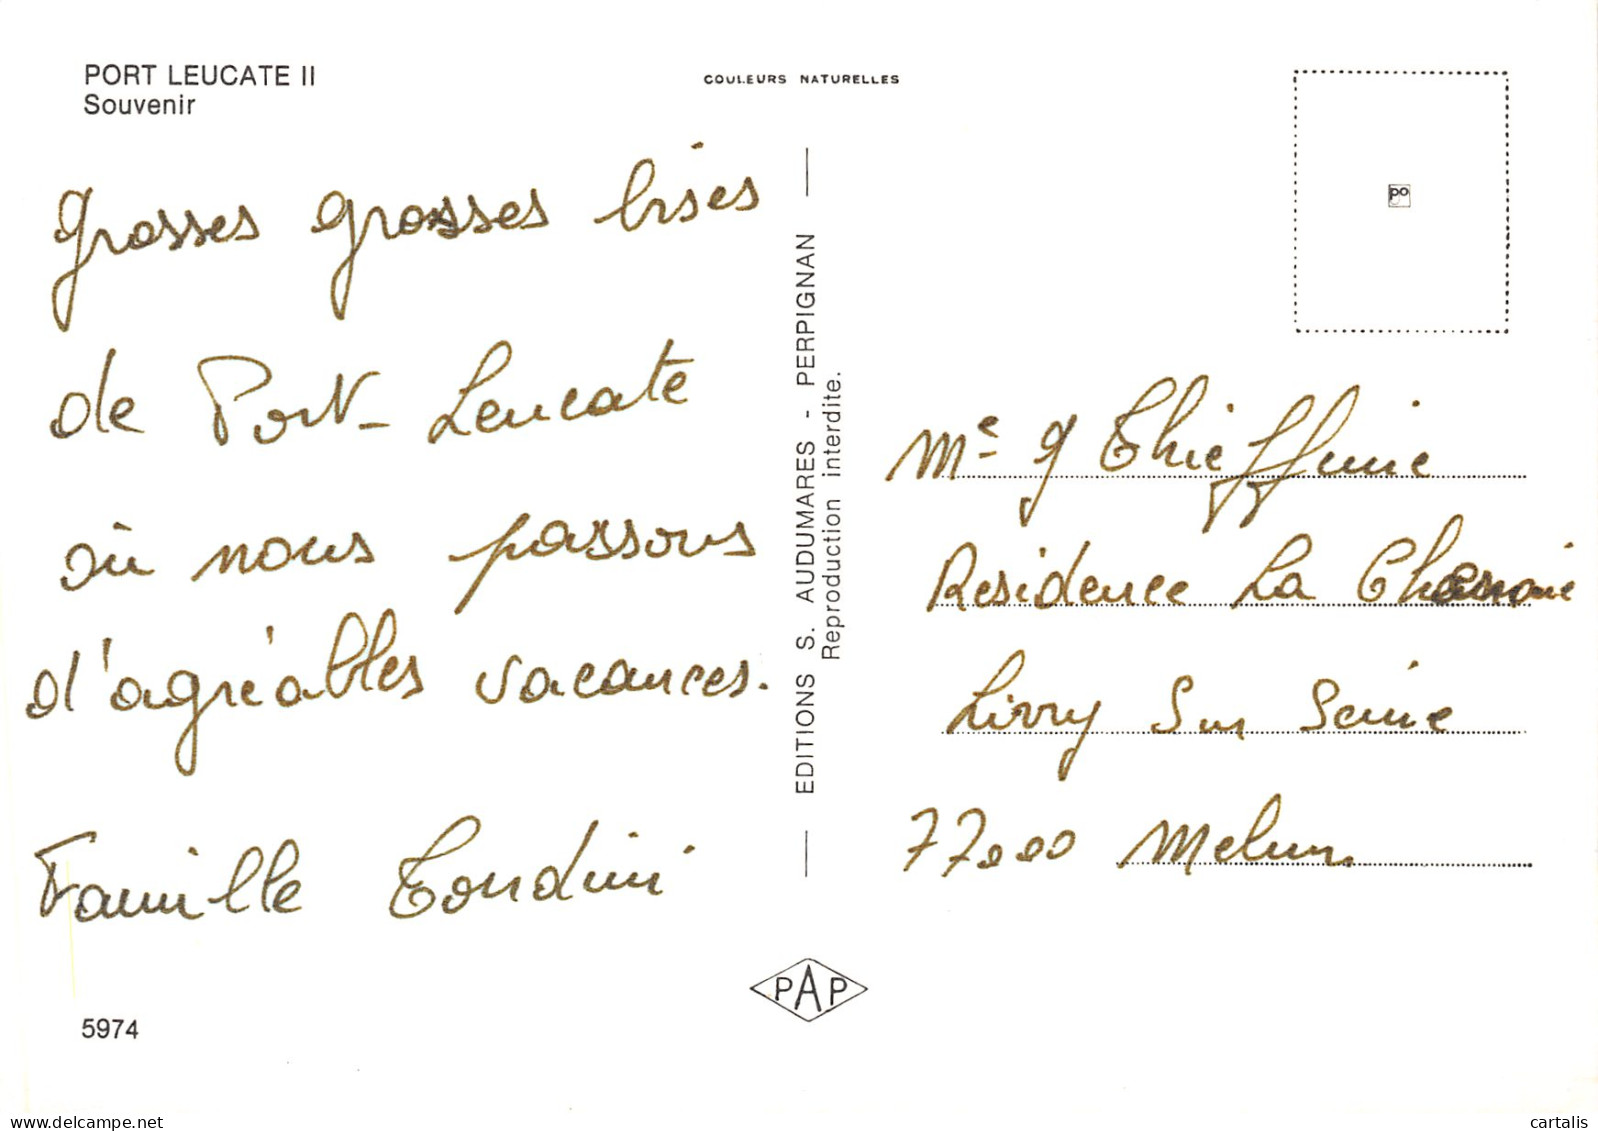 PORT LEUCATE II
Souvenir
COULEURS NATURELLES
po
grosses grosses bises
de Port-Leucate
où nous passons
d'agréables vacances.
Famille Tondini
5974
EDITIONS S. AUDUMARES - PERPIGNAN
Reproduction interdite.
PAP
Me
Residence La
Livry Sur Seine
77000 Melun
delcampe.net
cartalis